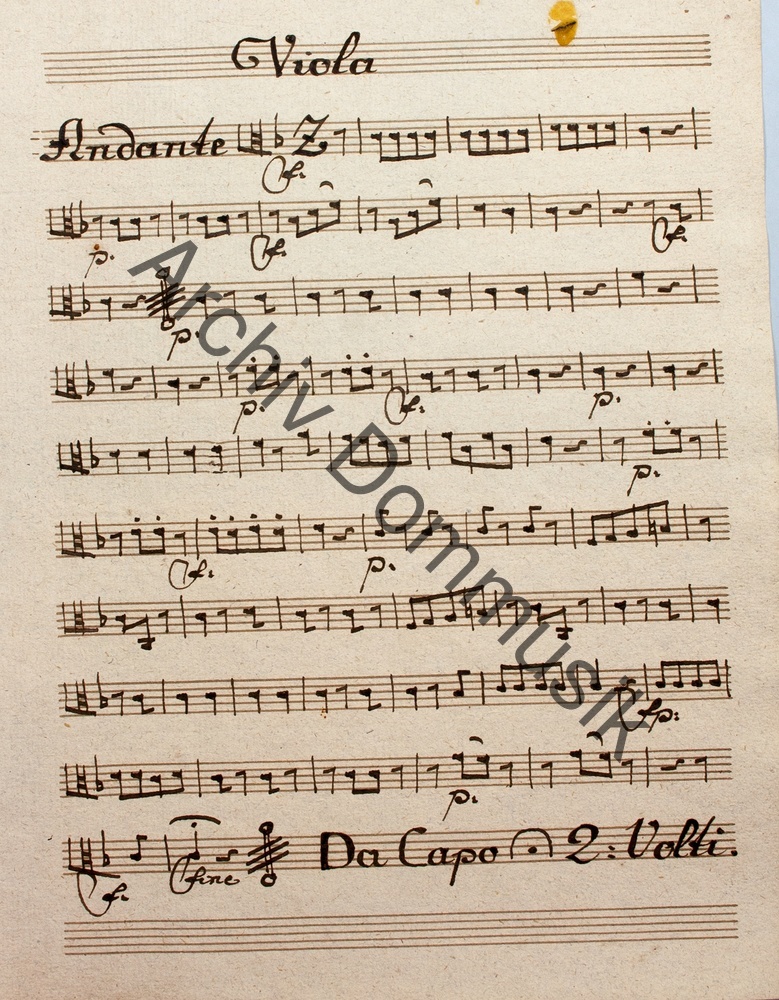 Viola
Andante 2
f:
p. f: f:
p:
p. f: p.
p.
f: p.
fp:
p.
Da Capo 2: Volti.
f: fine
Archiv Dommusik